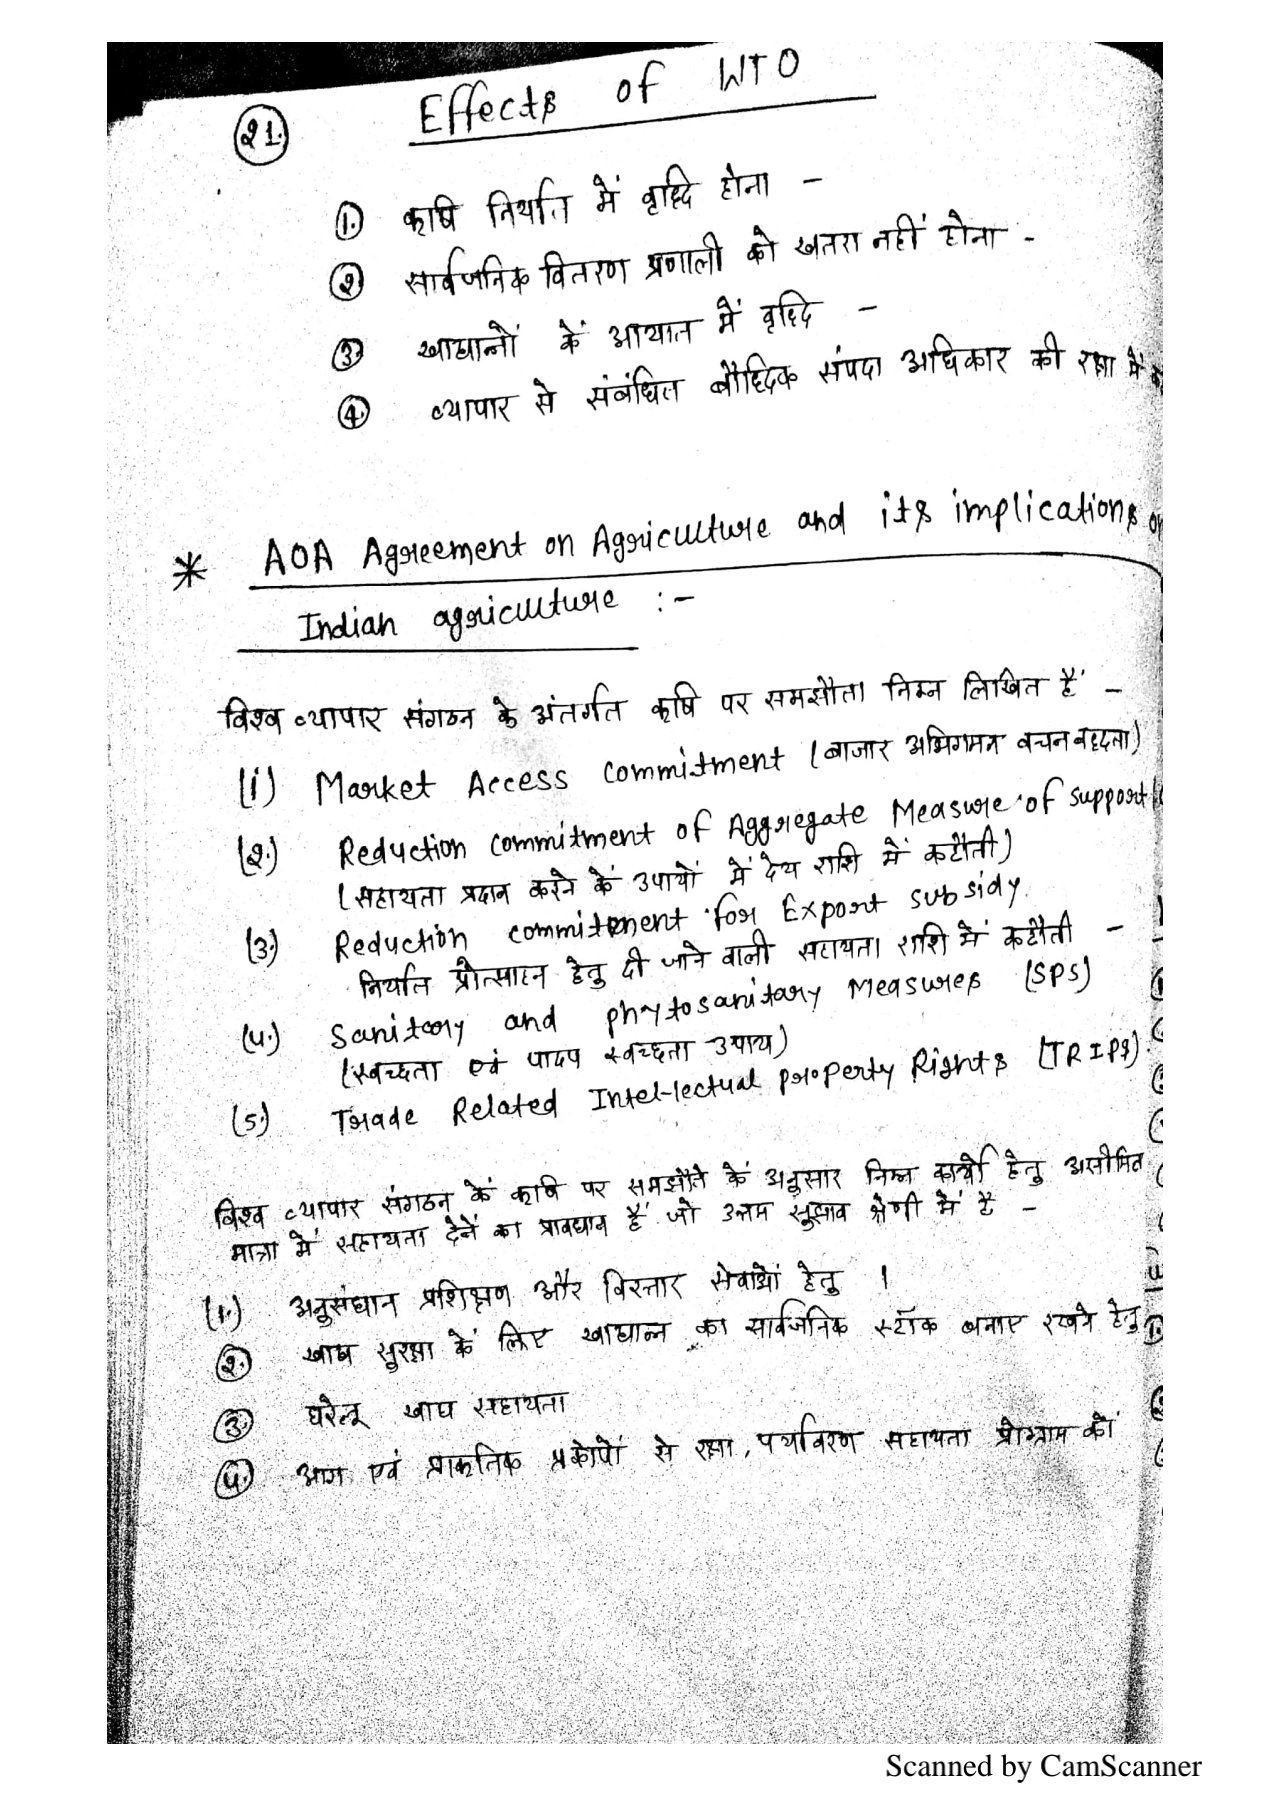 21.
Effects of WTO
1. कृषि निर्यात में वृद्धि होना -
2 सार्वजनिक वितरण प्रणाली को खतरा नहीं होना -
3. खाद्यान्नों कें आयात में वृद्धि -
4. व्यापार से संबंधित बौद्धिक संपदा अधिकार की रक्षा में
* AOA Agreement on Agriculture and its implications on
Indian agriculture :-
विश्व व्यापार संगठन के अंतर्गत कृषि पर समझौता निम्न लिखित हैं -
(i) Market Access commitment (बाजार अभिगमन वचनबद्दता)
(2.) Reduction commitment of Aggregate Measure of support
(सहायता प्रदान करने कें उपायों में देय राशि में कटौती)
(3.) Reduction commitment for Export subsidy.
निर्यात प्रोत्साहन हेतु दी जाने वाली सहायता राशि में कटौती -
(4.) Sanitary and phytosanitary Measures (SPS)
(स्वच्छता एवं पादप स्वच्छता उपाय)
(5.) Trade Related Intellectual property Rights (TRIPS)
विश्व व्यापार संगठन कें कृषि पर समझौते कें अनुसार निम्न कार्यो हेतु असीमित
मात्रा में सहायता देनें का प्रावधान हैं जो उत्तम सुझाव श्रेणी में है -
(1.) अनुसंधान प्रशिक्षण और विस्तार सेवाओं हेतु ।
2. खाद्य सुरक्षा कें लिए खाद्यान्न का सार्वजनिक स्टॉक बनाए रखने हेतु
3. घरेलू खाद्य सहायता
4. आग एवं प्राकृतिक प्रकोपों से रक्षा, पर्यावरण सहायता प्रोग्राम कों
Scanned by CamScanner